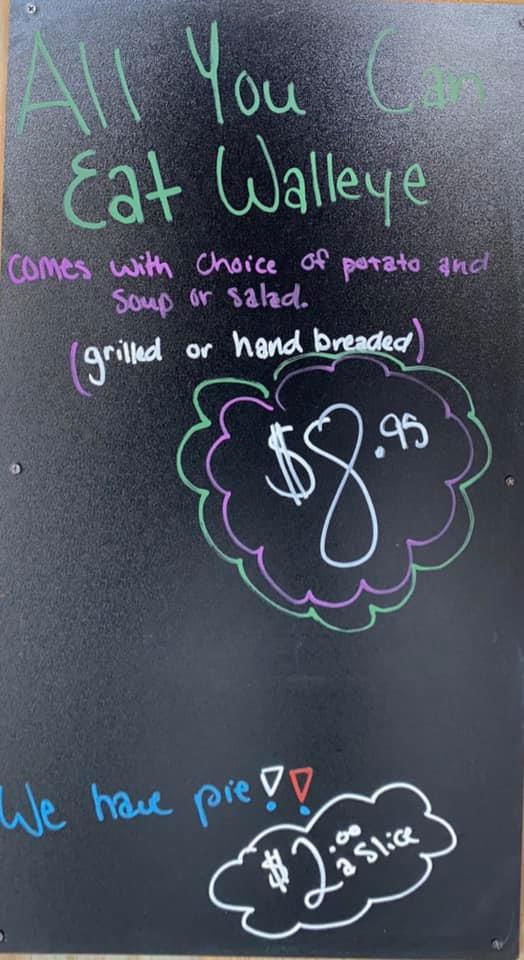 All You Can
Eat Walleye
Comes with choice of potato and
soup or salad.
(grilled or hand breaded)
$8.95
We have pie!!
$2.00
a slice